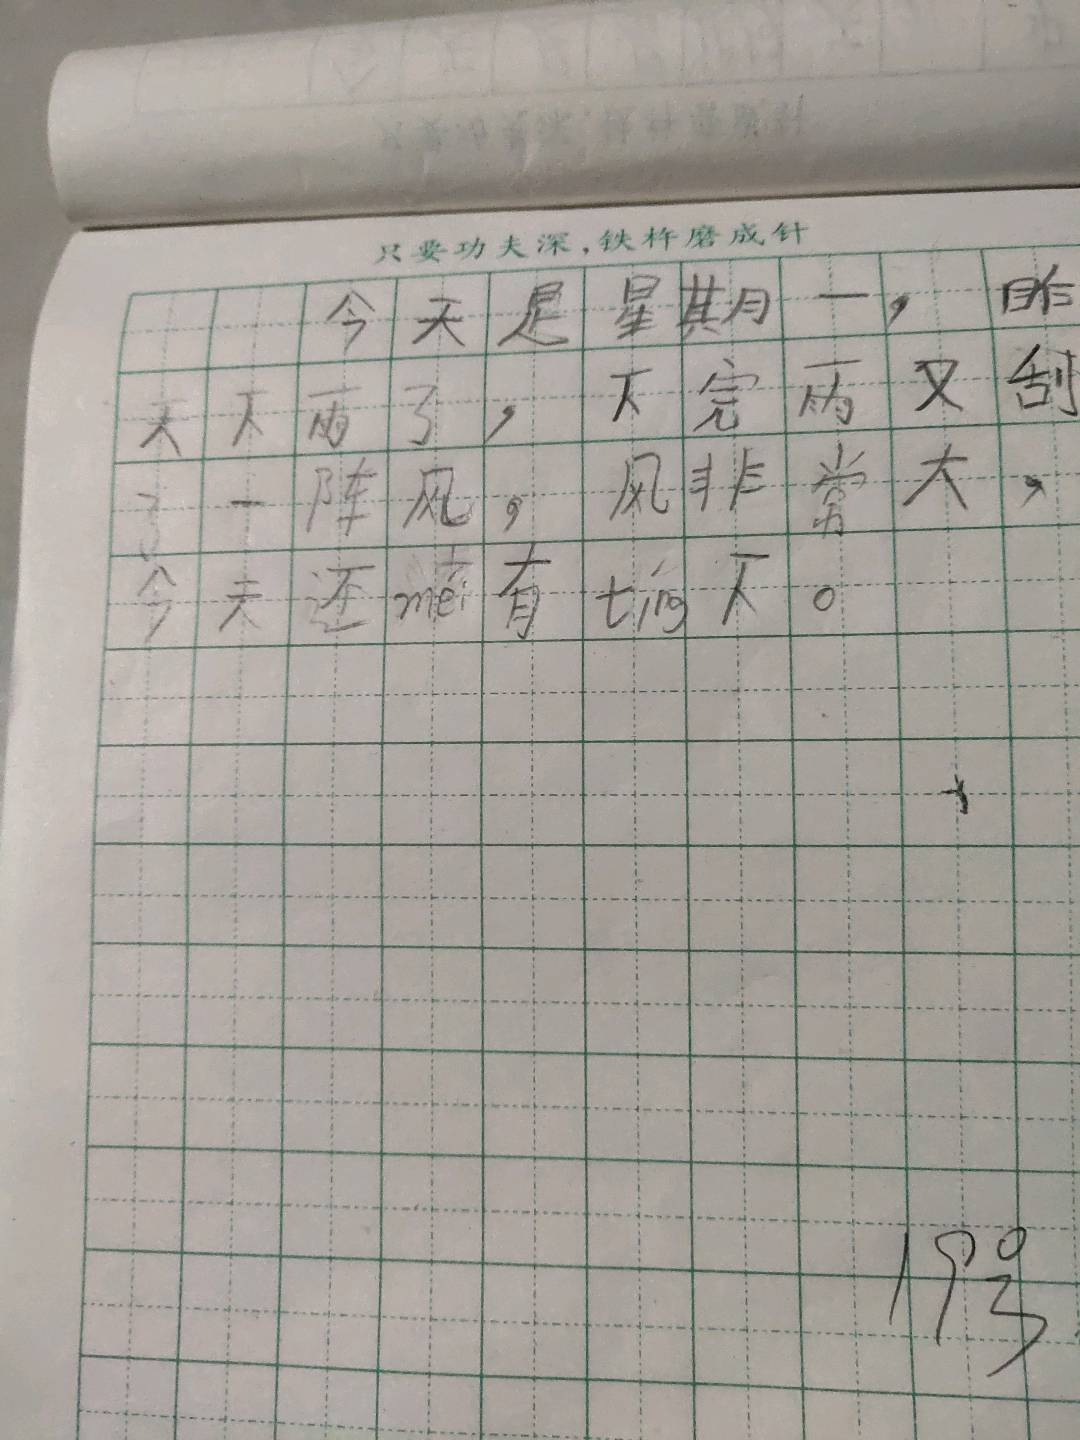 只要功夫深,铁杵磨成针
今天是星期一,昨
天下雨了,下完雨又刮
了一阵风,风非常大,
今天还méi有tíng下。
19号